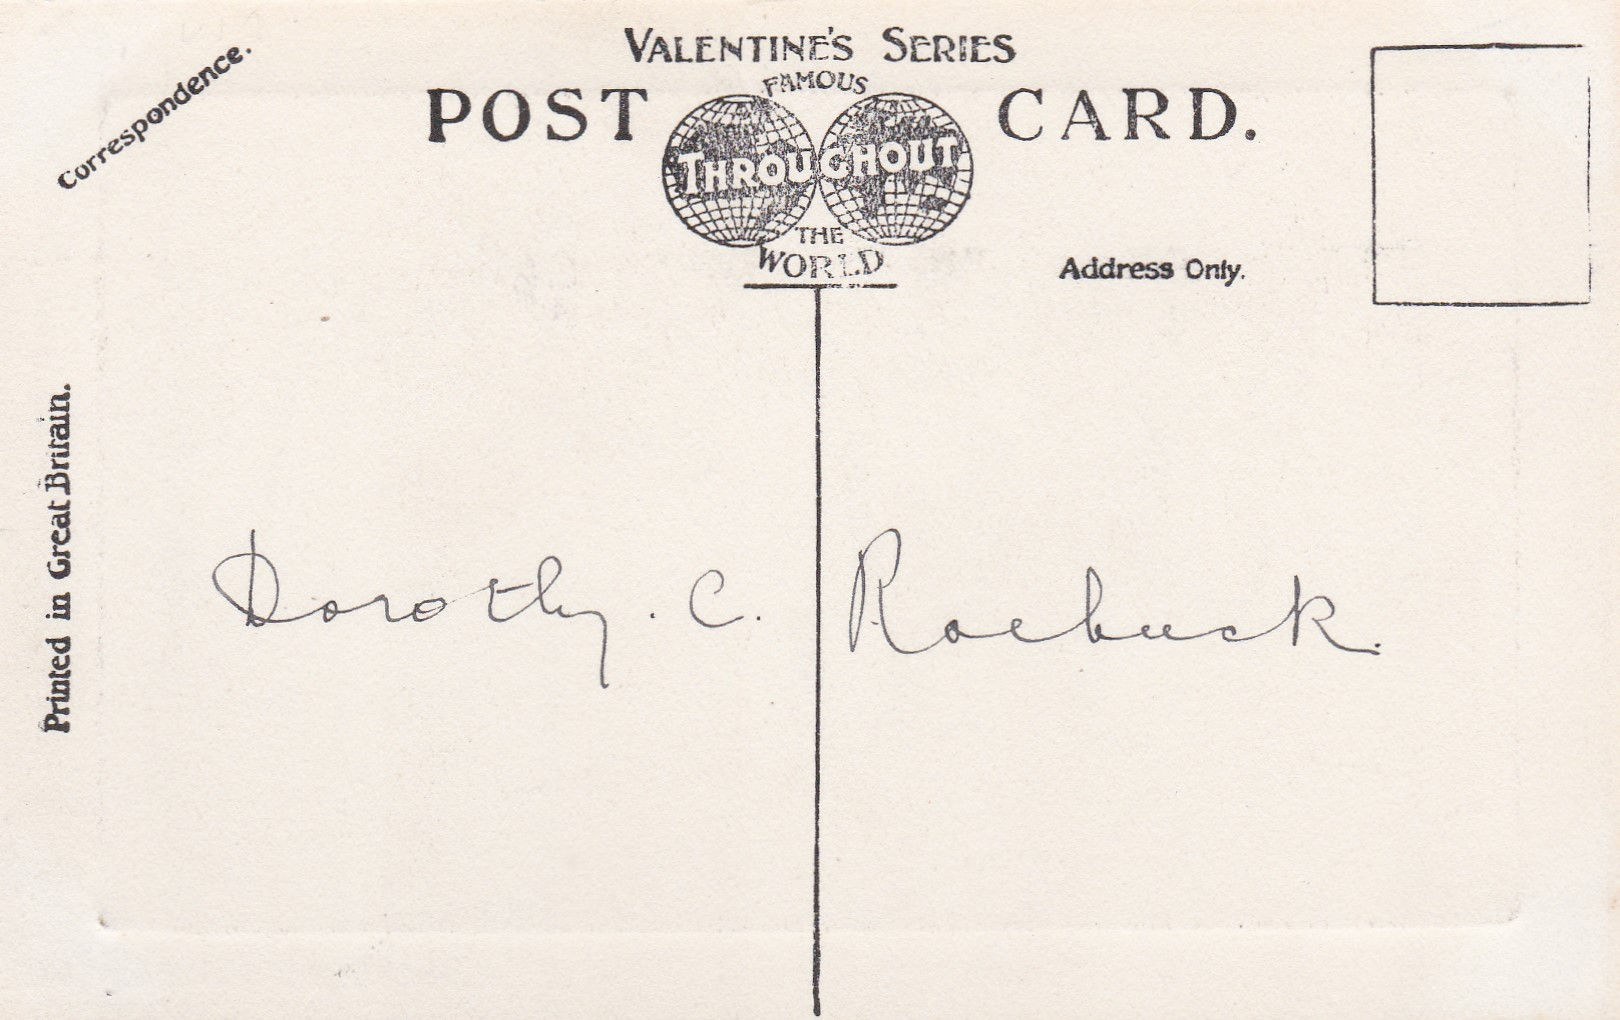 VALENTINE'S SERIES
FAMOUS
POST CARD.
THROUGHOUT
THE
WORLD
Correspondence.
Address Only.
Printed in Great Britain.
Dorothy. C. Roebuck.